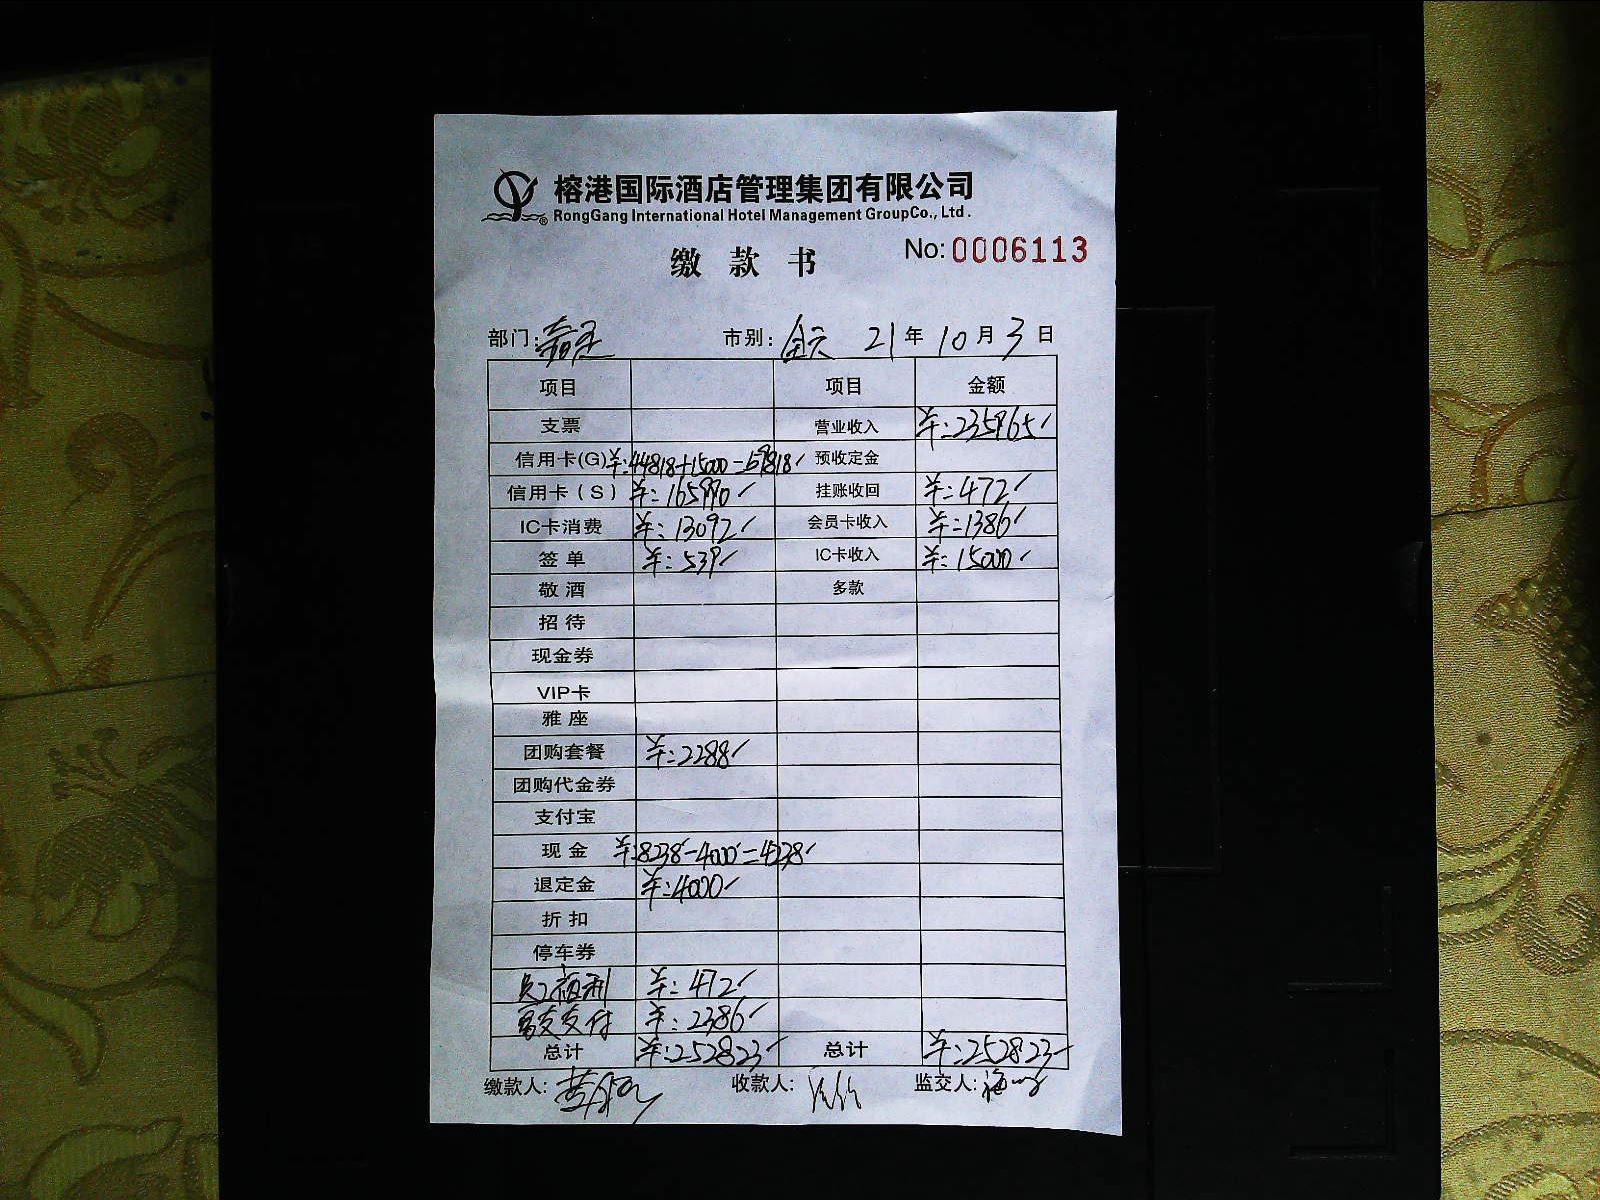 榕港国际酒店管理集团有限公司
RongGang International Hotel Management GroupCo., Ltd.
缴款书 No:0006113
部门: 市别:全天 21年10月3日
项目 项目 金额
支票 营业收入 ¥:235965
信用卡(G) ¥:44818+15000=59818 预收定金
信用卡(S) ¥:165990 挂账收回 ¥:472
IC卡消费 ¥:13092 会员卡收入 ¥:1386
签单 ¥:539 IC卡收入 ¥:15000
敬酒 多款
招待
现金券
VIP卡
雅座
团购套餐 ¥:2288
团购代金券
支付宝
现金 ¥:8238-4000=4238
退定金 ¥:4000
折扣
停车券
员工福利 ¥:472
支付 ¥:2386
总计 ¥:252823 总计 ¥:252823
缴款人: 收款人: 监交人: